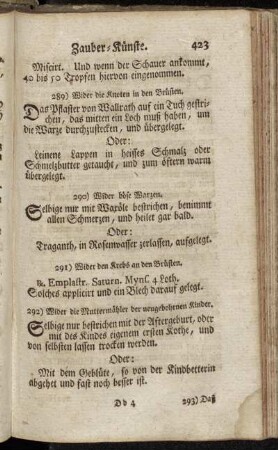 Zauber-Künste. 423
Miscirt. Und wenn der Schauer ankommt,
40 bis 50 Tropfen hiervon eingenommen.
289) Wider die Knoten in den Brüsten.
Das Pflaster von Wallrath auf ein Tuch gestri-
chen, das mitten ein Loch muß haben, um
die Warze durchzustecken, und übergelegt.
Oder:
Leinene Lappen in heisses Schmalz oder
Schmelzbutter getaucht, und zum öftern warm
übergelegt.
290) Wider böse Warzen.
Selbige nur mit Waxöle bestrichen, benimmt
allen Schmerzen, und heilet gar bald.
Oder:
Traganth, in Rosenwasser zerlassen, aufgelegt.
291) Wider den Krebs an den Brüsten.
℞. Emplastr. Saturn. Mynf. 4 Loth.
Solches applicirt und ein Blech darauf gelegt.
292) Wider die Muttermähler der neugebohrnen Kinder.
Selbige nur bestrichen mit der Aftergeburt, oder
mit des Kindes eigenem ersten Kothe, und
von selbsten lassen trocken werden.
Oder:
Mit dem Geblüte, so von der Kindbetterin
abgehet und fast noch besser ist.
Dd 4 293) Daß